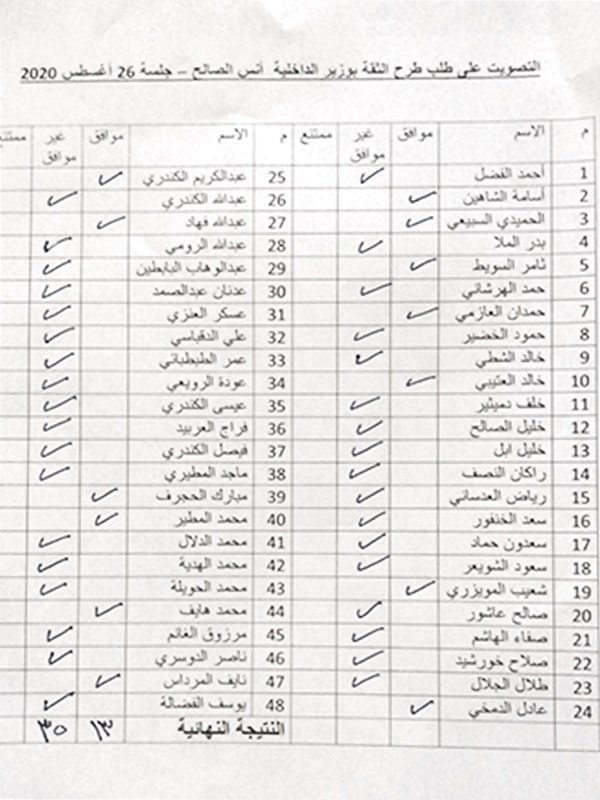 التصويت على طلب طرح الثقة بوزير الداخلية أنس الصالح – جلسة 26 أغسطس 2020
م الاسم موافق غير موافق ممتنع م الاسم موافق غير موافق ممتنع
1 أحمد الفضل 25 عبدالكريم الكندري
2 أسامة الشاهين 26 عبدالله الكندري
3 الحميدي السبيعي 27 عبدالله فهاد
4 بدر الملا 28 عبدالله الرومي
5 ثامر السويط 29 عبدالوهاب البابطين
6 حمد الهرشاني 30 عدنان عبدالصمد
7 حمدان العازمي 31 عسكر العنزي
8 حمود الخضير 32 علي الدقباسي
9 خالد الشطي 33 عمر الطبطبائي
10 خالد العتيبي 34 عودة الرويعي
11 خلف دميثير 35 عيسى الكندري
12 خليل الصالح 36 فراج العربيد
13 خليل ابل 37 فيصل الكندري
14 راكان النصف 38 ماجد المطيري
15 رياض العدساني 39 مبارك الحجرف
16 سعد الخنفور 40 محمد المطير
17 سعدون حماد 41 محمد الدلال
18 سعود الشويعر 42 محمد الهدية
19 شعيب المويزري 43 محمد الحويلة
20 صالح عاشور 44 محمد هايف
21 صفاء الهاشم 45 مرزوق الغانم
22 صلاح خورشيد 46 ناصر الدوسري
23 طلال الجلال 47 نايف المرداس
24 عادل الدمخي 48 يوسف الفضالة
النتيجة النهائية ١٣ ٣٠